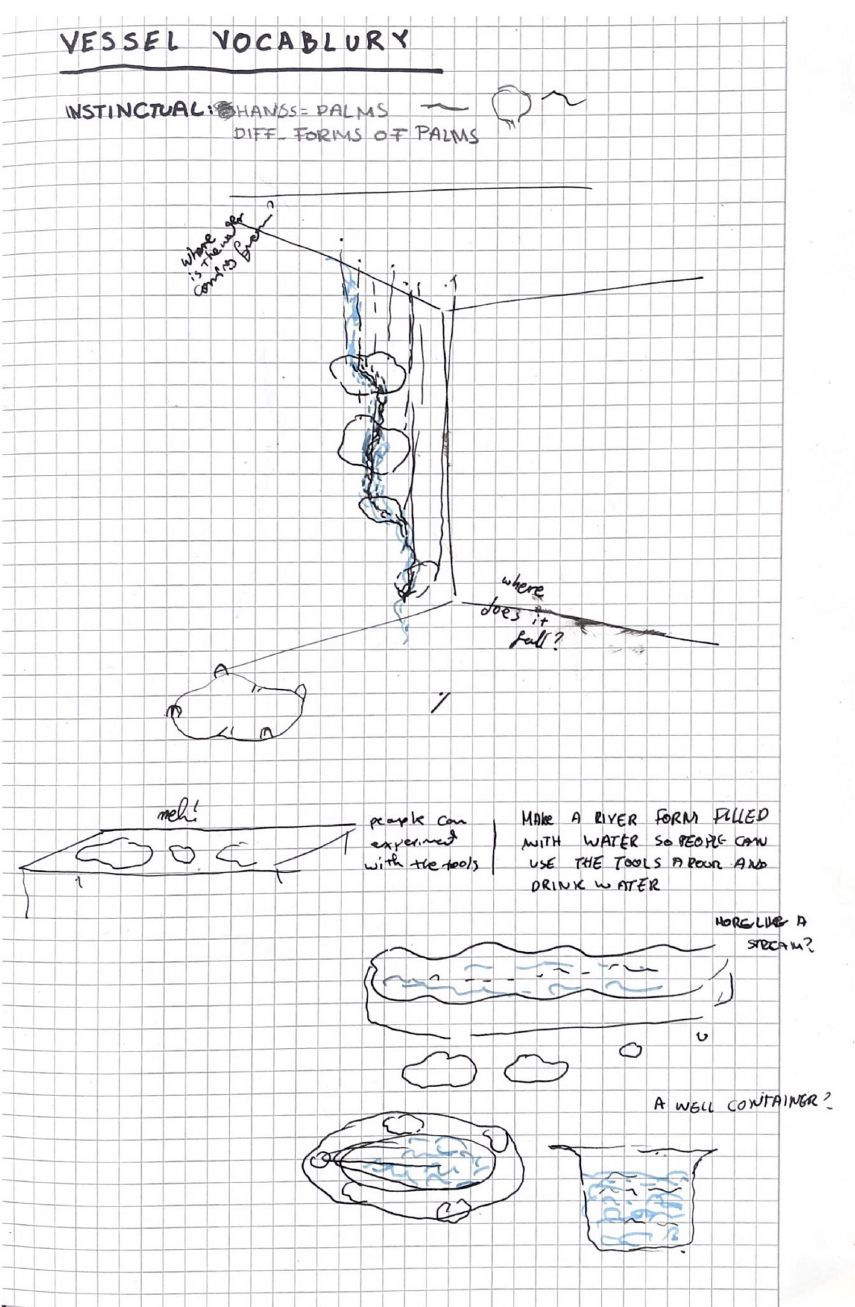 VESSEL VOCABLURY
INSTINCTUAL: HANDS = PALMS
DIFF_ FORMS OF PALMS
where
is the water
coming from?
where
does it
fall?
meh!
people can
experiment
with the tools
MAKE A RIVER FORM FILLED
WITH WATER SO PEOPLE CAN
USE THE TOOLS A POUR AND
DRINK WATER
MORE LIKE A
STREAM?
A WELL CONTAINER?